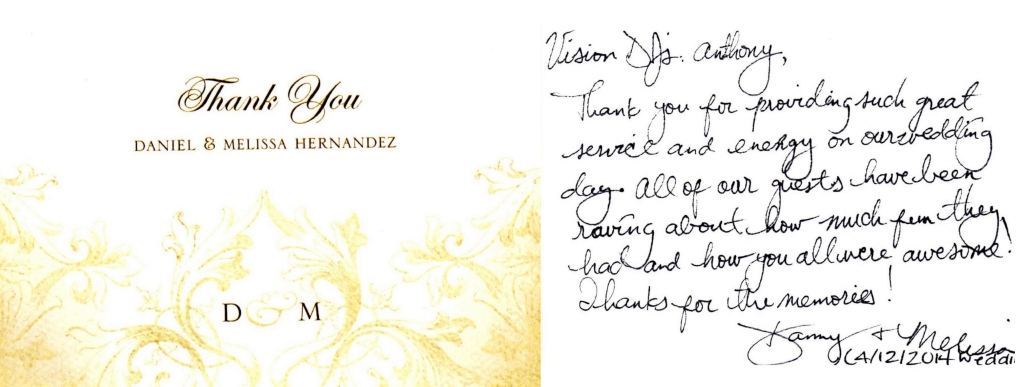 Thank You
DANIEL & MELISSA HERNANDEZ
D & M
Vision DJs: Anthony,
Thank you for providing such great
service and energy on our wedding
day. All of our guests have been
raving about how much fun they
had and how you all were awesome!
Thanks for the memories!
Danny + Melissa
(4/12/2014 Weddi